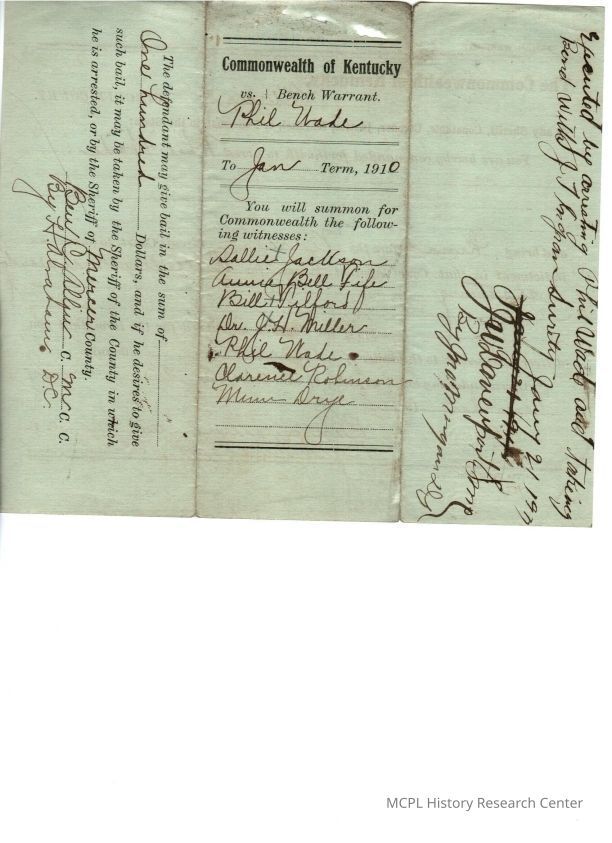 The defendant may give bail in the sum of
One hundred Dollars, and if he desires to give
such bail, it may be taken by the Sheriff of the County in which
he is arrested, or by the Sheriff of Mercer County.
Ben C. Allin C. M. C. C.
By H. Graham D.C.
Commonwealth of Kentucky
vs. Bench Warrant.
Phil Wade
To Jan Term, 1910
You will summon for
Commonwealth the follow-
ing witnesses:
Sallie Jackson
Annie Bell Fife
Bill Tilford
Dr. J. H. Miller
Phil Wade
Clarence Robinson
Mimi Drye
Executed by arresting Phil Wade and taking
Bond with J. T. Ingram Surety
Jany 21 1910
By
MCPL History Research Center